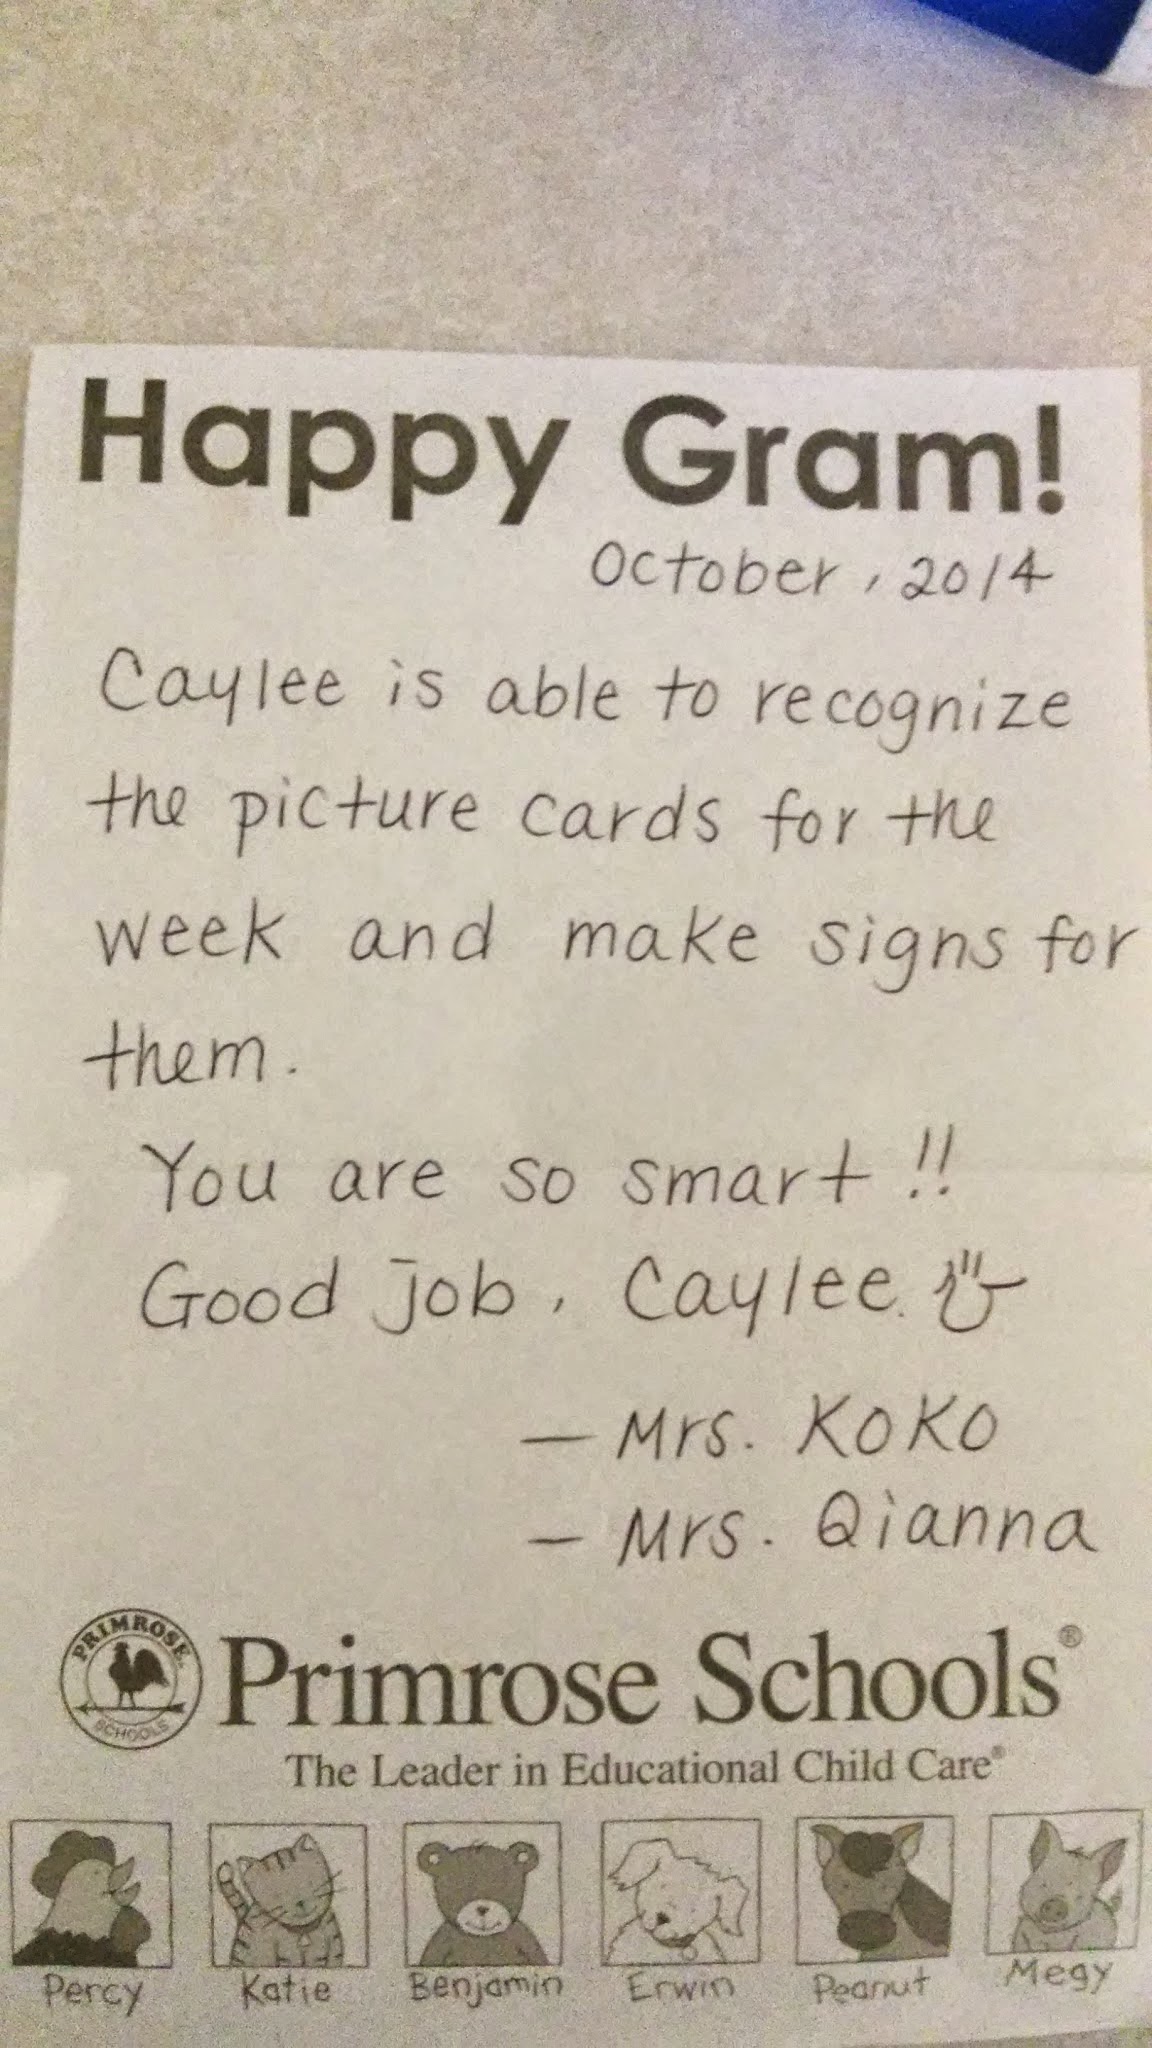 Happy Gram!
October, 2014
Caylee is able to recognize
the picture cards for the
week and make signs for
them.
You are so smart!!
Good job, Caylee.
— Mrs. KoKo
— Mrs. Qianna
PRIMROSE
SCHOOLS
Primrose Schools®
The Leader in Educational Child Care®
Percy Katie Benjamin Erwin Peanut Megy